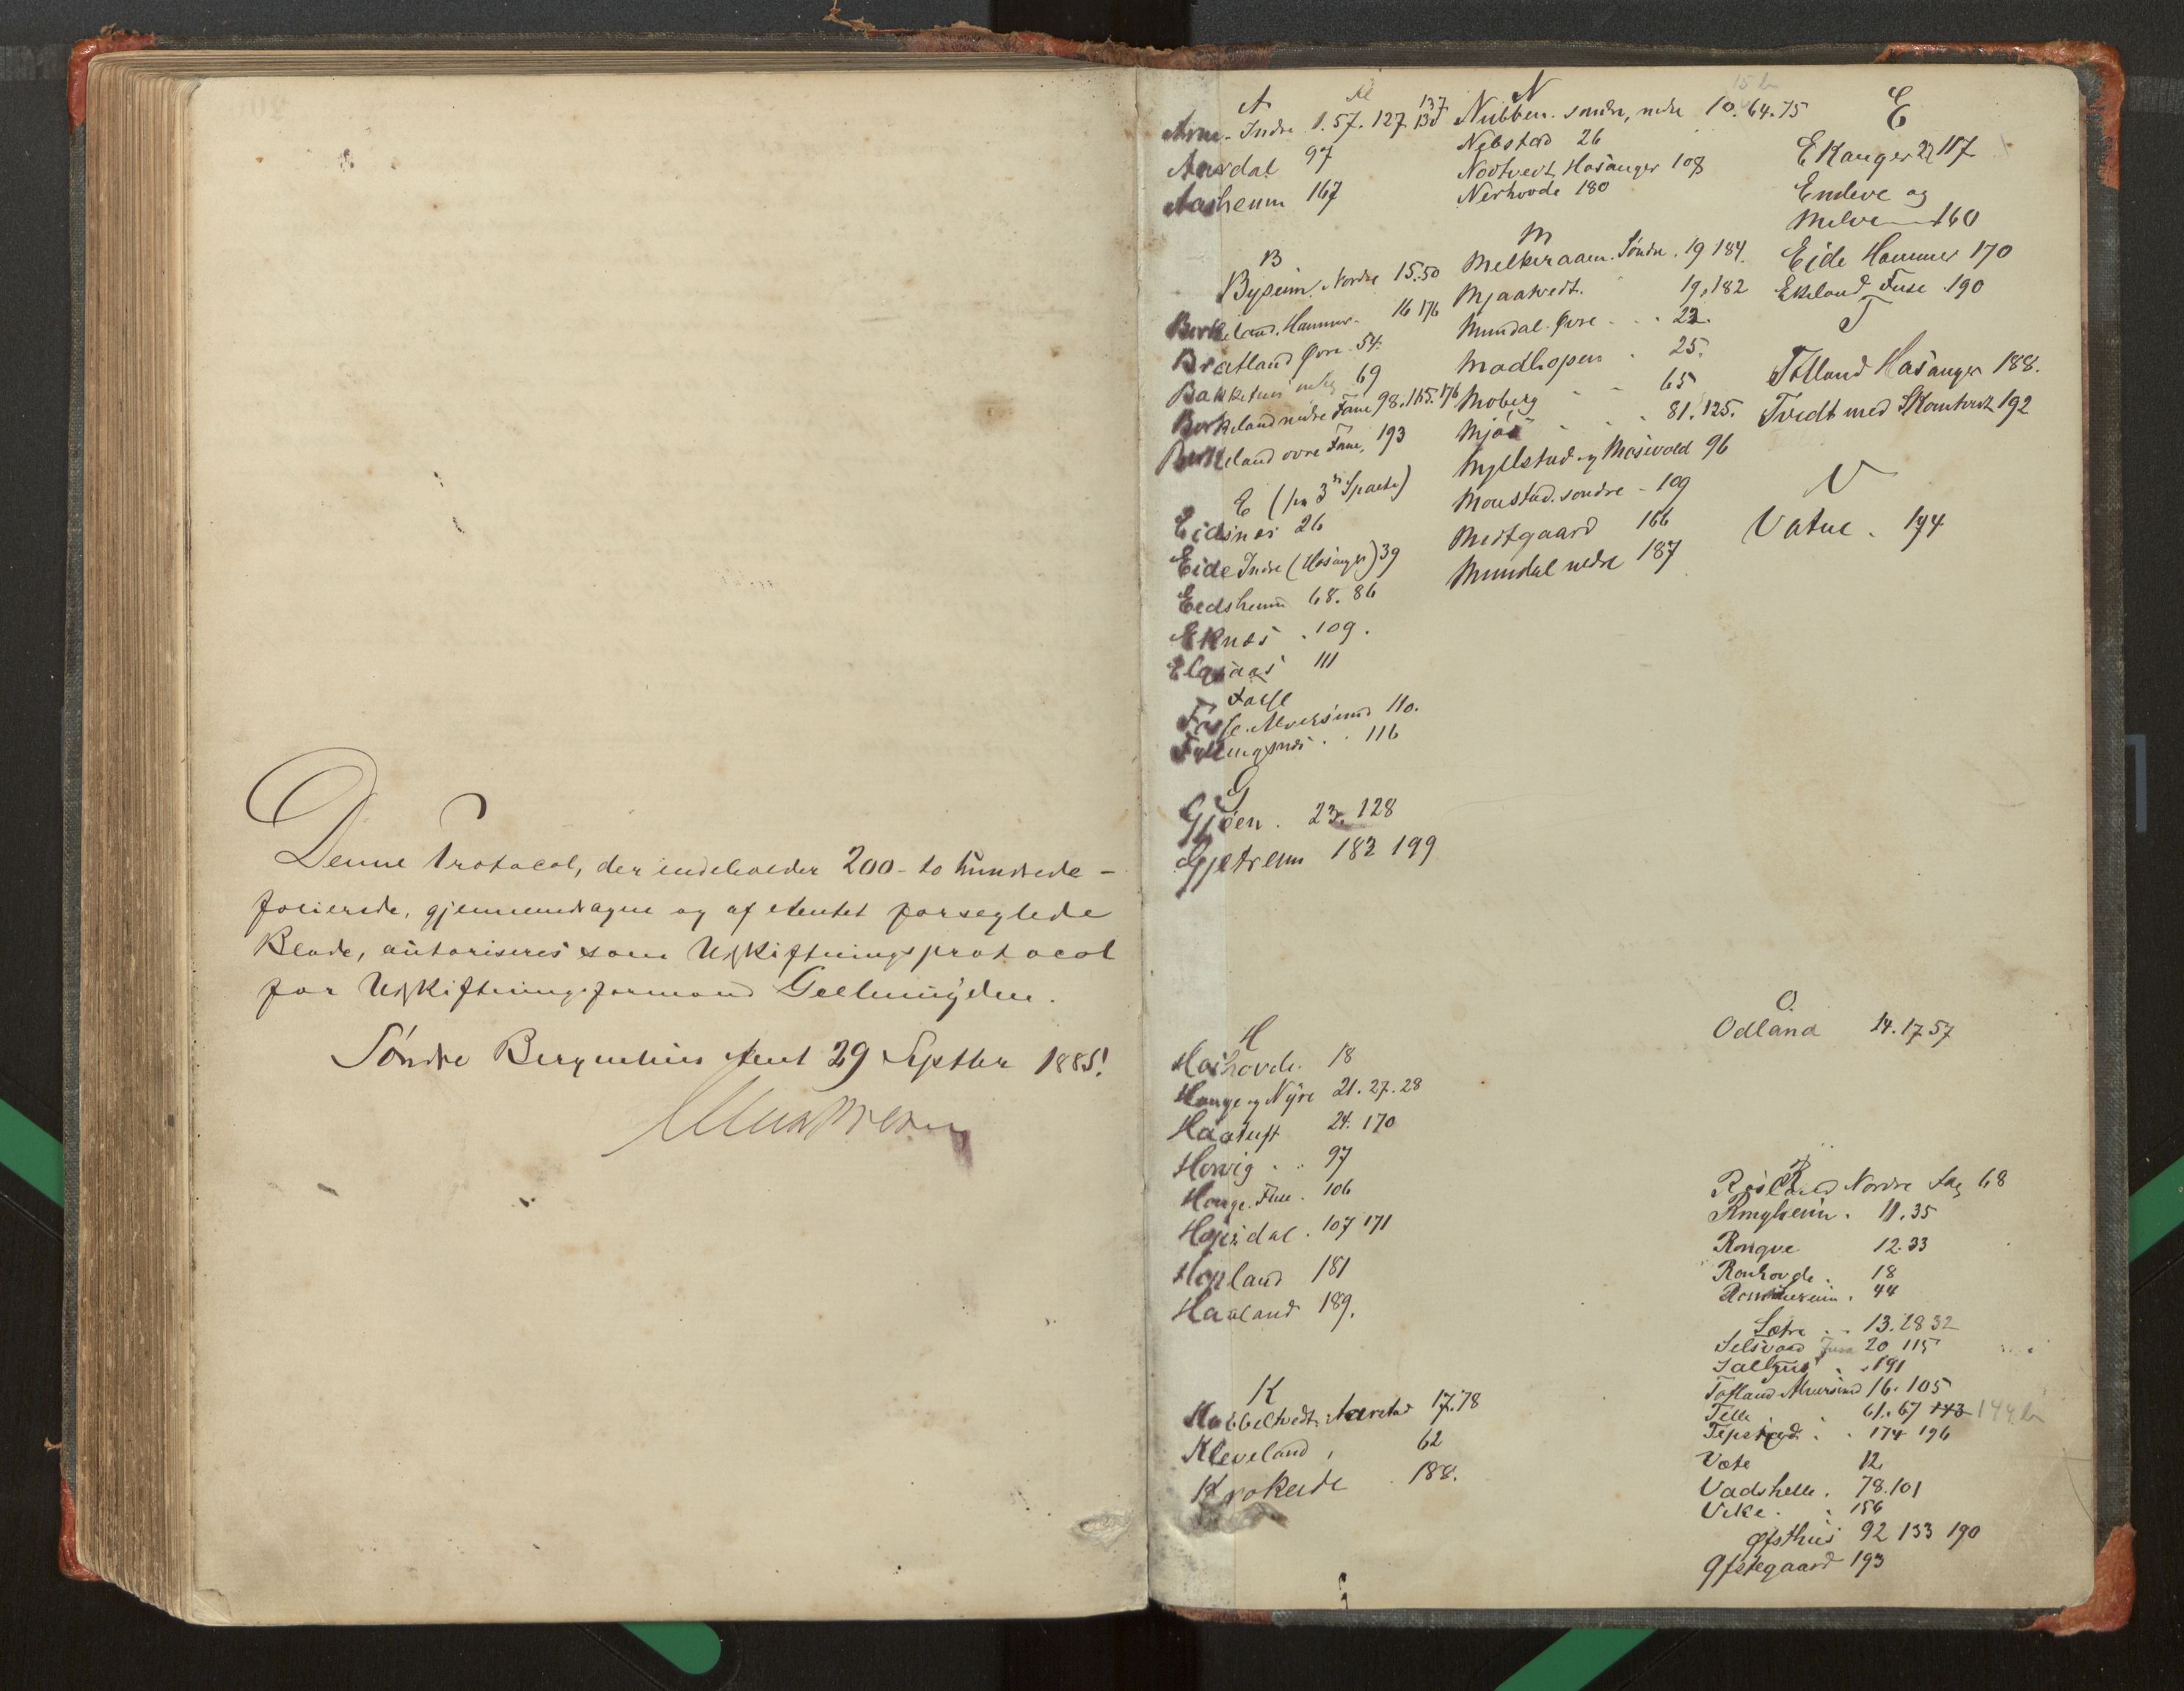 Denne Protocol, der indeholder 200 - to hundrede -
folierede, gjennemdragne og af Amtet forseglede
Blade, autoriseres som Udskiftningsprotocol
for Udskiftningsformand Gjellemyden.
Søndre Bergenhus Amt 29 Septbr 1885!
A
Arne. Indre 1. 57. 127. 137 130
Aardal 97
Aasheim 167
B
Byseim. Nordre 15. 50
Birkeland. Hammer. 16 176
Bratland Øvre 54.
Bakketun 69
Birkeland nedre Fane 98. 165. 176
Birkeland øvre Fane, 193
E (se 3die Spalte)
Eidsnes 26
Eide Indre (Hosanger) 39
Eidsheim 68. 86
Eknes . 109.
Elsaas 111
Fosse
Fosse. Alversund 110.
Fyllingsnes . . 116
G
Gjøen . 23. 128
Gjetreim 182 199
H
Hoshovde. 18
Hauge og Nyre 21. 27. 28
Haatuft 24. 170
Hervig . . 97
Hauge. Fuse. 106
Hopsdal . 107 171
Hopland 181
Haaland 189.
K
Kobbeltvedt. 17. 78
Kleveland , 62
Krokeide . 188.
N
15 b
Nubben. søndre, nedre 10. 64. 75
Nebstad 26
Nodtvedt, Hosanger 108
Nerhovde 180
M
Melkeraaen. Søndre . 19 184.
Mjaatvedt. 19, 182
Mundal. Øvre . . . 22.
Modhopen . 25.
Moberg - - 65
Mjøs . . . 81. 125.
Myllstad og Mosevold 96
Monstad. søndre - 109
Midtgaard 166
Mundal nedre 187
E
Ekanger 22 117
Endeve og
Melve 160
Eide Hammer 170
Ekeland Fuse 190
T
Tofland Hosanger 188.
Tvedt med Skomtvedt 192
V
Vatne . 194
O.
Odland 14. 17 57
R
Rosland Nordre 68
Ringheim . 11. 35
Rongve 12. 33
Ronhovde . 18
Romsereim . 44
Sætre . . 13. 28 32
Selsvold Fuse 20 115
Salhus . . 191
Tofland Alversund 16. 105
Telle . . 61. 67 143 144 b
Tepstad . . 174 196
Vote 12.
Vadshelle . 78. 101
Vike . . 156
Øfsthus 92 133 190
Øfstegaard 193